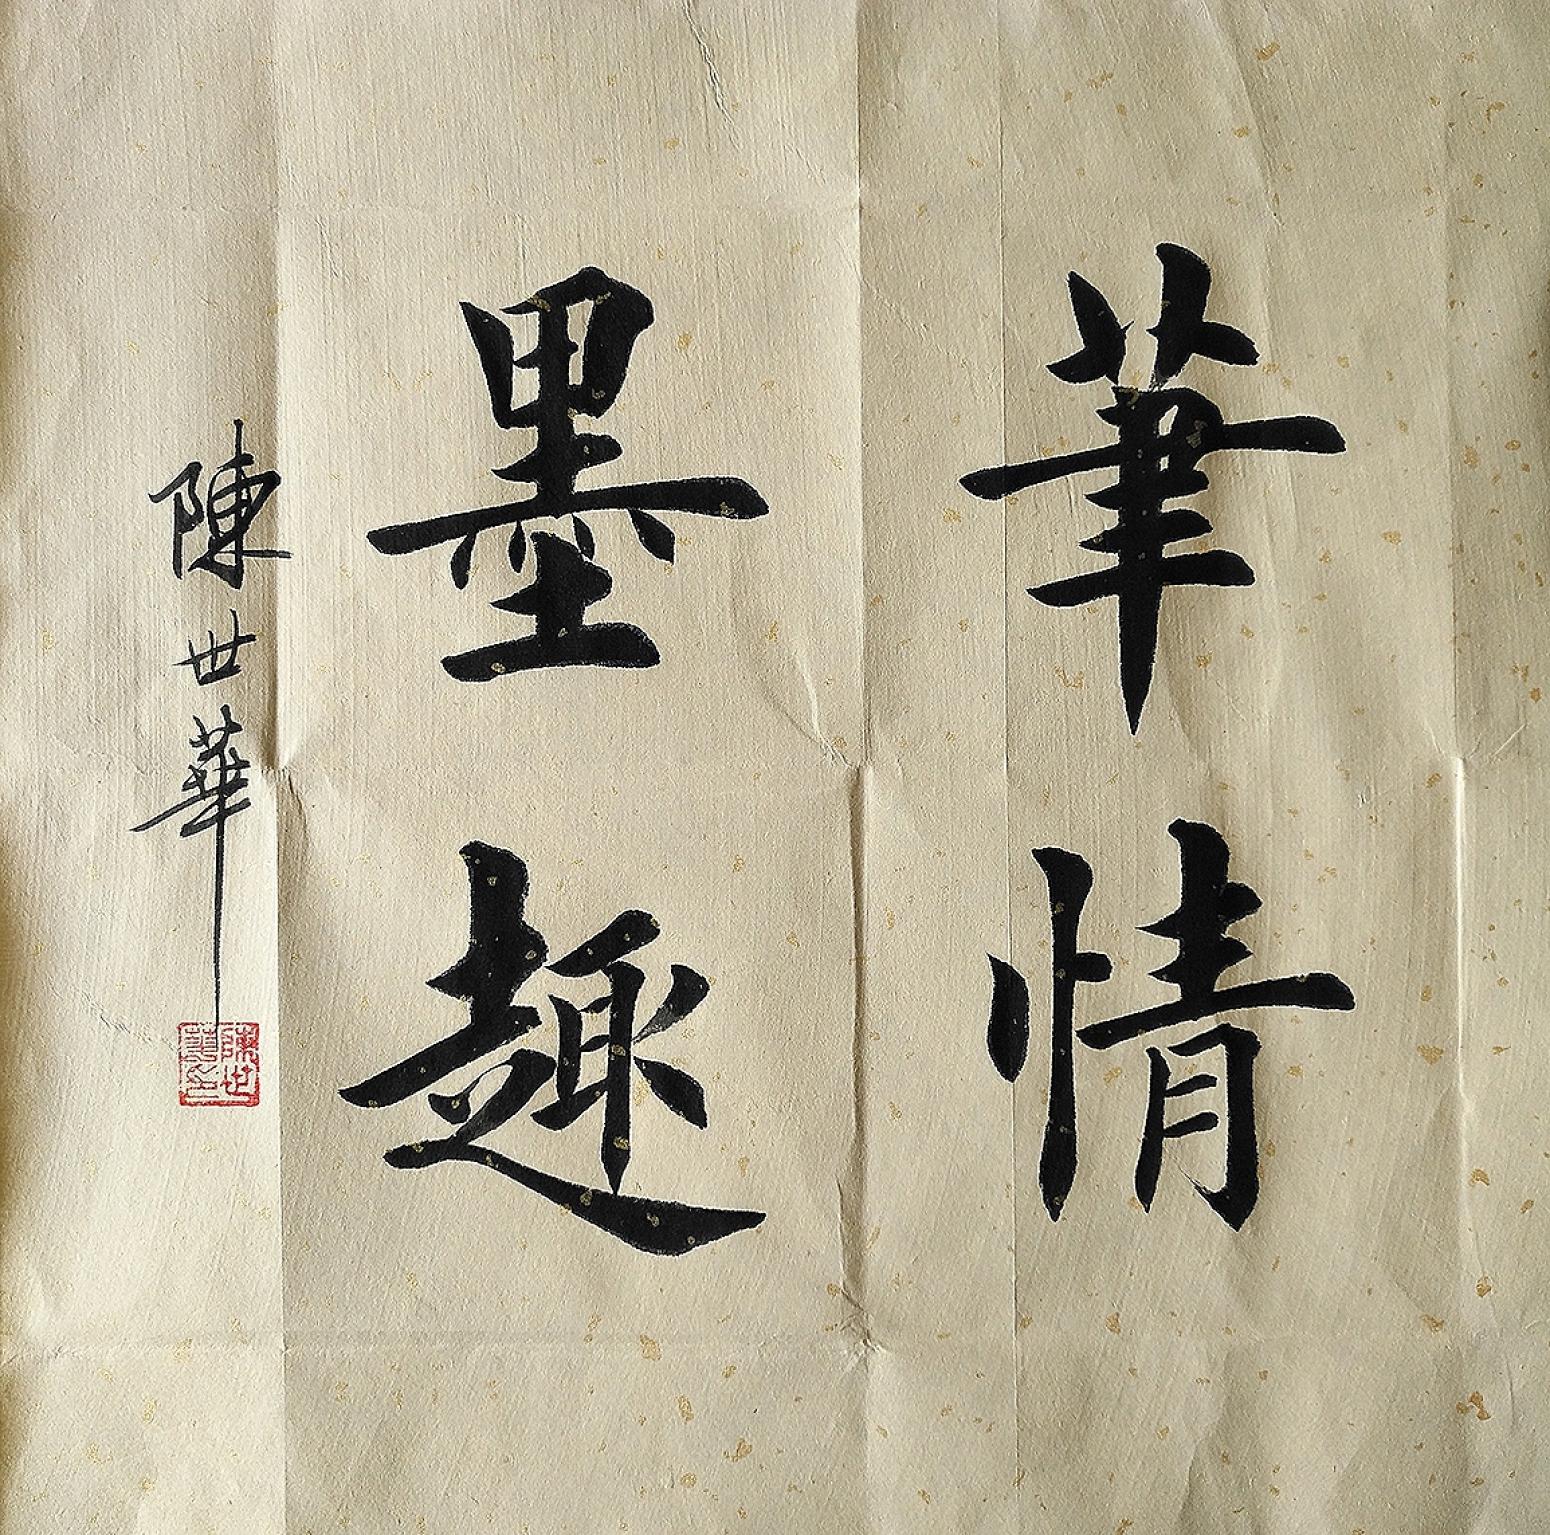 筆情
墨趣
陳世華
陳世華印